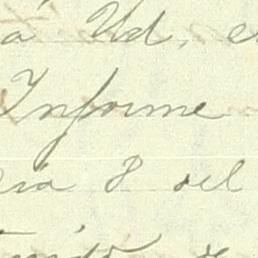 á Ud. e
Informe
ra 8 del